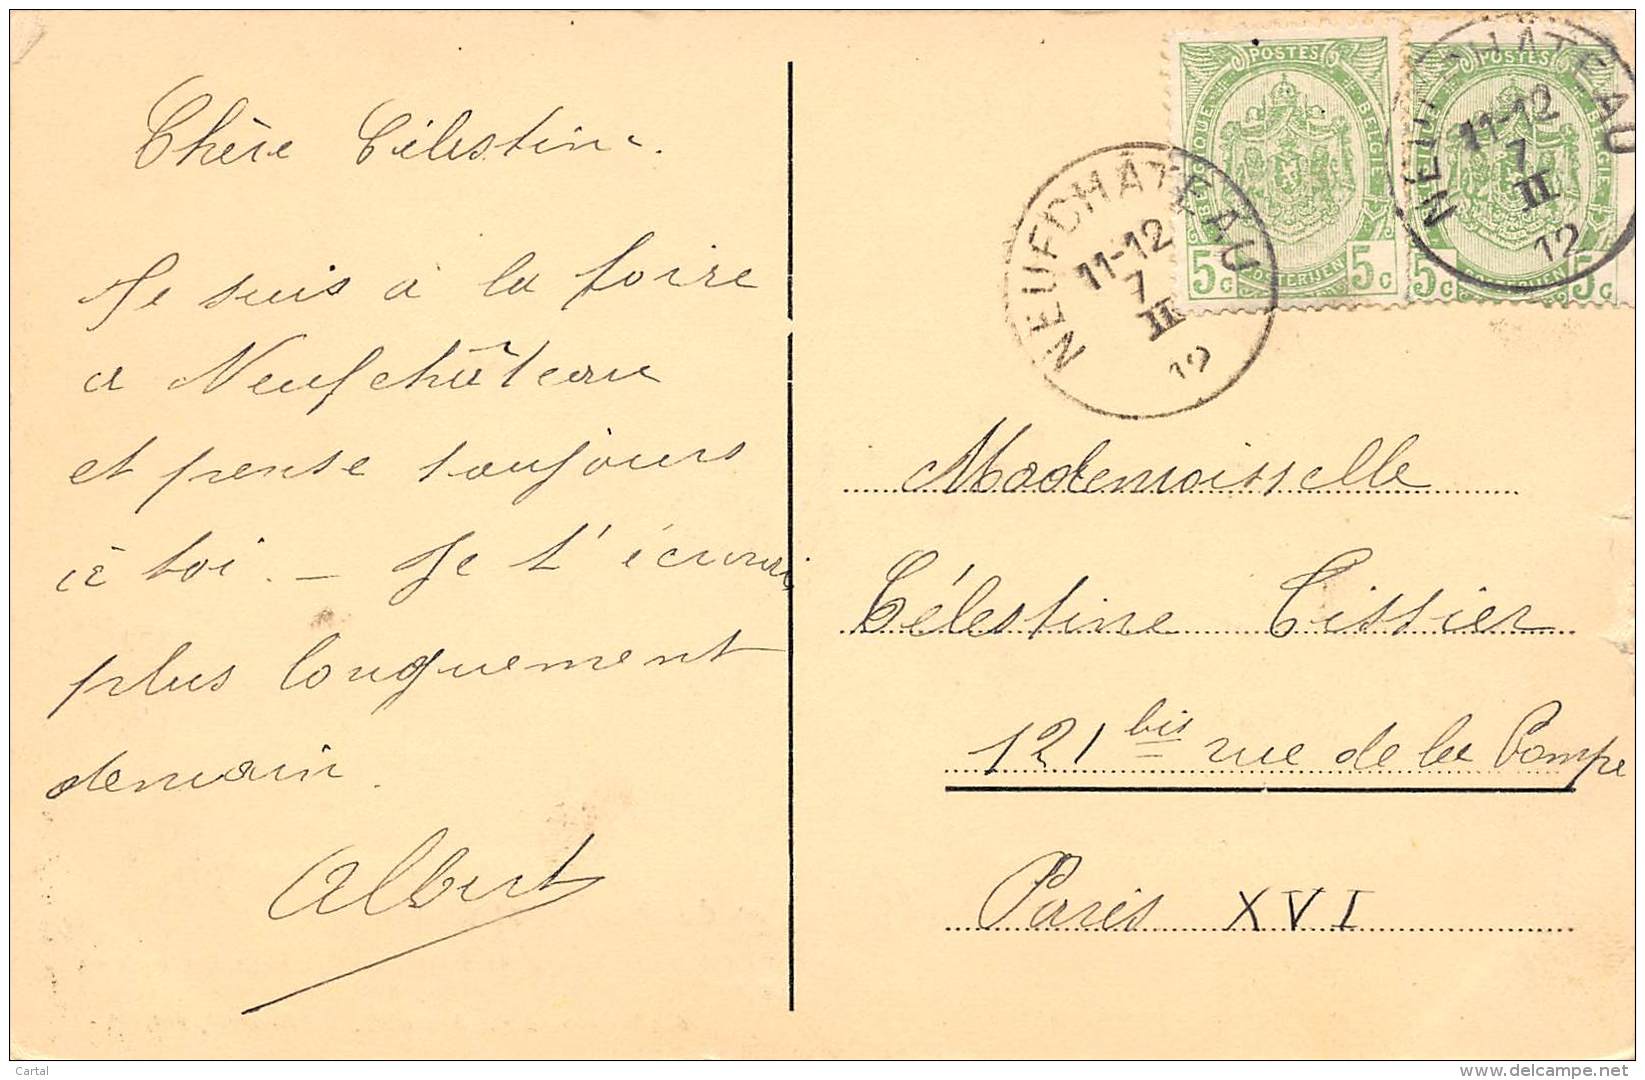 Chère Célestine.
Je suis à la foire
à Neufchâteau
et pense toujours
à toi. – Je t'écrirai
plus longuement
demain.
Albert
POSTES
BELGIQUE
BELGIE
POSTERIJEN
5c 5c
POSTES
BELGIE
5c 5c
NEUFCHÂTEAU
11-12
7
II
12
NEUFCHÂTEAU
11-12
7
II
12
Mademoisselle
Célestine Tissier
121 bis rue de la Pompe
Paris XVI
Cartal
delcampe.net